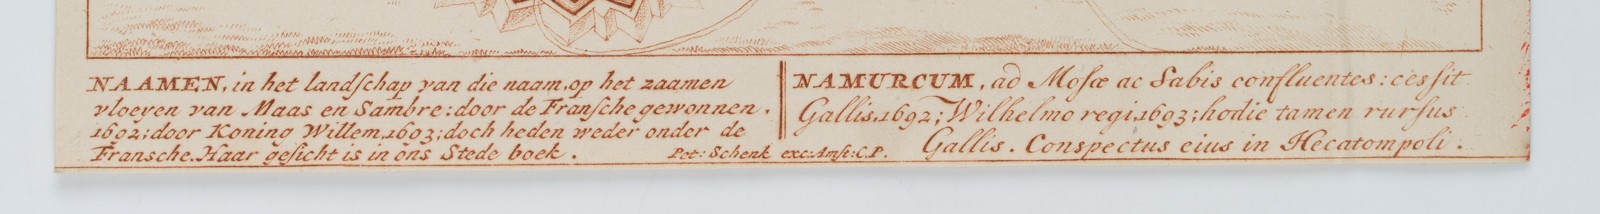 NAAMEN, in het landſchap van die naam, op het zaamen
vloeyen van Maas en Sambre: door de Franſche gewonnen,
1692; door Koning Willem, 1693; doch heden weder onder de
Fransche. Haar geſicht is in ons Stede boek.
Pet: Schenk exc: Amſt: C.P.
NAMURCUM, ad Moſæ ac Sabis confluentes: ceſſit
Gallis, 1692; Wilhelmo regi, 1693; hodie tamen rurſus
Gallis. Conspectus eius in Hecatompoli.